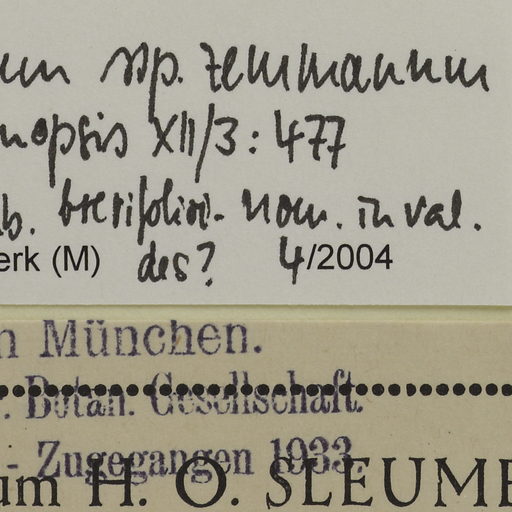 um ssp. zermannum
nopsis XII/3: 477
b. brevifolior. nom. inval.
erk (M) des? 4/2004
n München.
. Botan. Gesellschaft.
- Zugegangen 1933.
um H. O. SLEUME